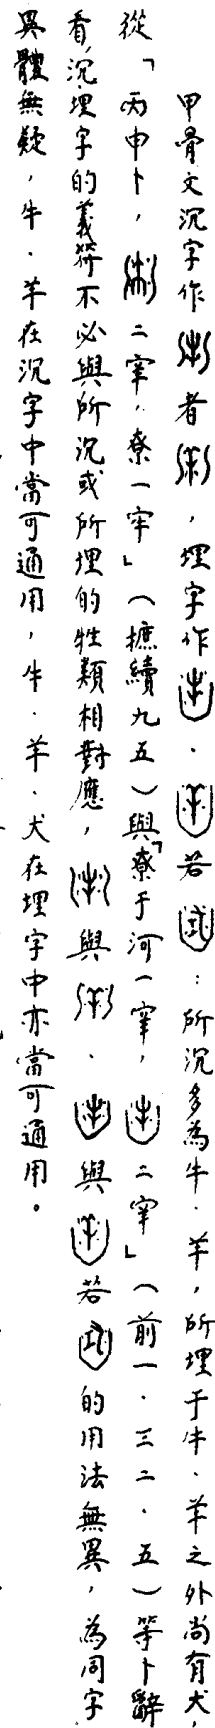 甲骨文沉字作者，埋字作、若：所沉多為牛、羊，所埋于牛、羊之外尚有犬，
從「丙申卜，二宰，尞一牢」（摭續九五）與「尞于河一宰，二宰」（前一·三二·五）等卜辭
看，沉、埋字的義符不必與所沉或所埋的牲類相對應，與、與若的用法無異，為同字
異體無疑，牛、羊在沉字中當可通用，牛、羊、犬在埋字中亦當可通用。